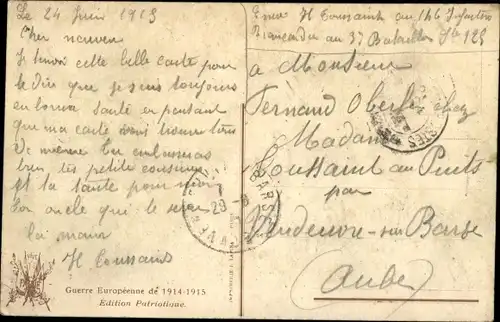 Le 24 Juin 1915
Cher neuveu
Je t'envoi cette belle carte pour
te dire que je suis toujours
en bonne santé en pensant
que ma carte vous trouve tous
de même tu embrasseras
bien tes petite cousines
et ta tante pour moi
ton oncle qui te serre
la main
H Toussaint
Guerre Européenne de 1914-1915
Édition Patriotique.
H Toussaint au 146 Infanterie
Brancardier au 3e Bataillon
à Monsieur
Fernand Oberlé chez
Madame
Toussaint au Puits
par
Vendeuvre-sur Barse
Aube